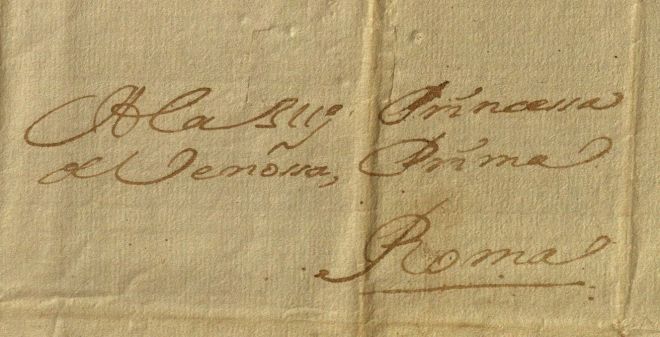 A la Illᵃ. Princessa
de Venossa, Prima
Roma